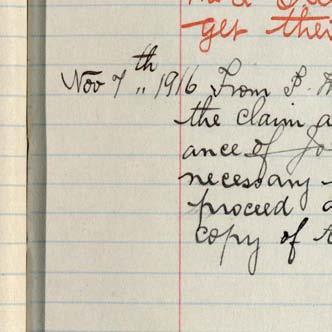 get their
Nov 7th 1916 From P.
the claim a
ance of Jo
necessary
proceed a
copy of t